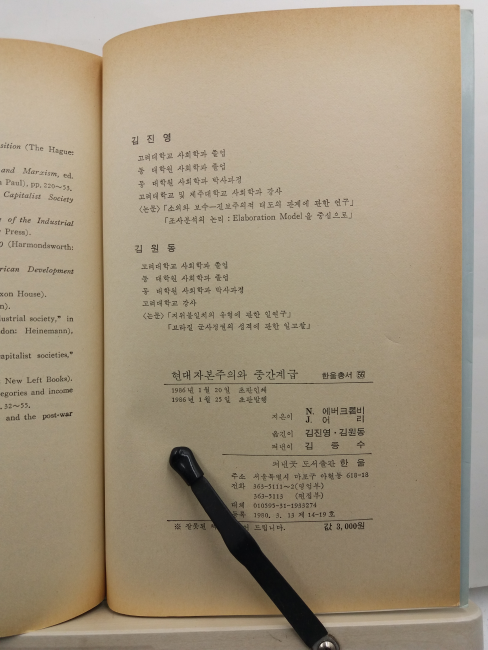 sition (The Hague:
and Marxism, ed.
Paul), pp. 220—53.
Capitalist Society
of the Industrial
Press).
(Harmondsworth:
rican Development
xon House).
n).
dustrial society," in
don: Heinemann),
capitalist societies,"
New Left Books).
tegories and income
. 32—53.
and the post-war
김 진 영
고려대학교 사회학과 졸업
동 대학원 사회학과 졸업
동 대학원 사회학과 박사과정
고려대학교 및 제주대학교 사회학과 강사
〈논문〉「소외와 보수—진보주의적 태도의 관계에 관한 연구」
「조사분석의 논리 : Elaboration Model을 중심으로」
김 원 동
고려대학교 사회학과 졸업
동 대학원 사회학과 졸업
동 대학원 사회학과 박사과정
고려대학교 강사
〈논문〉「지위불일치의 유형에 관한 일연구」
「브라질 군사정권의 성격에 관한 일고찰」
현대자본주의와 중간계급 한울총서
1986년 1월 20일 초판인쇄
1986년 1월 25일 초판발행
지은이 N. 에버크롬비
J. 어 리
옮긴이 김진영·김원동
펴낸이 김 종 수
펴낸곳 도서출판 한 울
주소 서울특별시 마포구 아현동 618-18
전화 363-5111~2(영업부)
363-5113 (편집부)
대체 010595-31-1933274
등록 1980. 3. 13 제 14-19호
※ 잘못된 드립니다. 값 3,000원